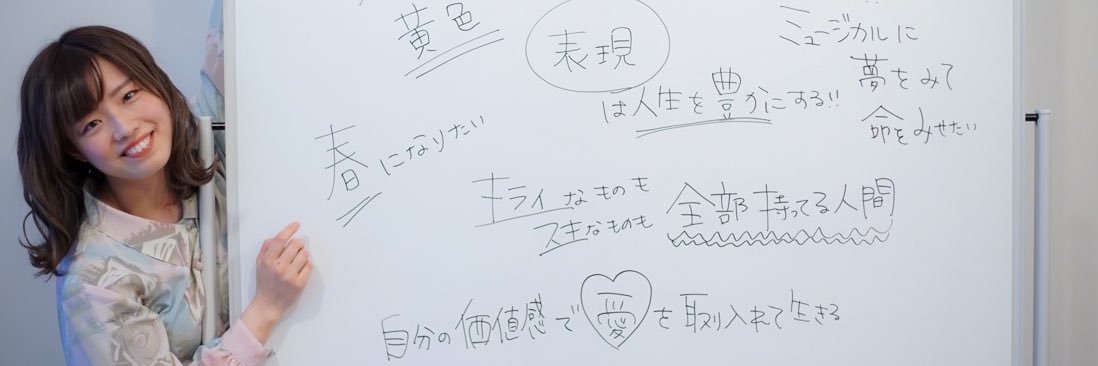 黄色
表現
は人生を豊かにする!!
ミュージカルに
夢をみて
命をみせたい
春になりたい
キライなものも
スキなものも
全部持ってる人間
自分の価値感で愛を取り入れて生きる